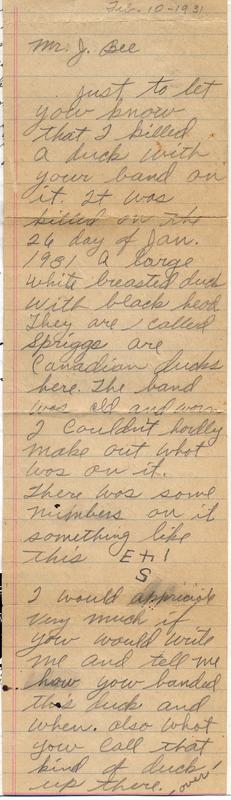 Feb. 10-1931
Mr. J. Bee
just to let
yow know
that I killed
a duck with
your band on
it. It was
killed on the
26 day of Jan.
1931 a large
white breasted duck
with black head
They are called
Spriggs are
Canadian ducks
here. The band
was old and worn
I couldn't hardly
make out what
was on it.
There was some
numbers on it
something like
this 143
5
I would appriciate
very much if
yow would write
me and tell me
how yow banded
this duck and
when. also what
yow call that
kind of duck
up there. over